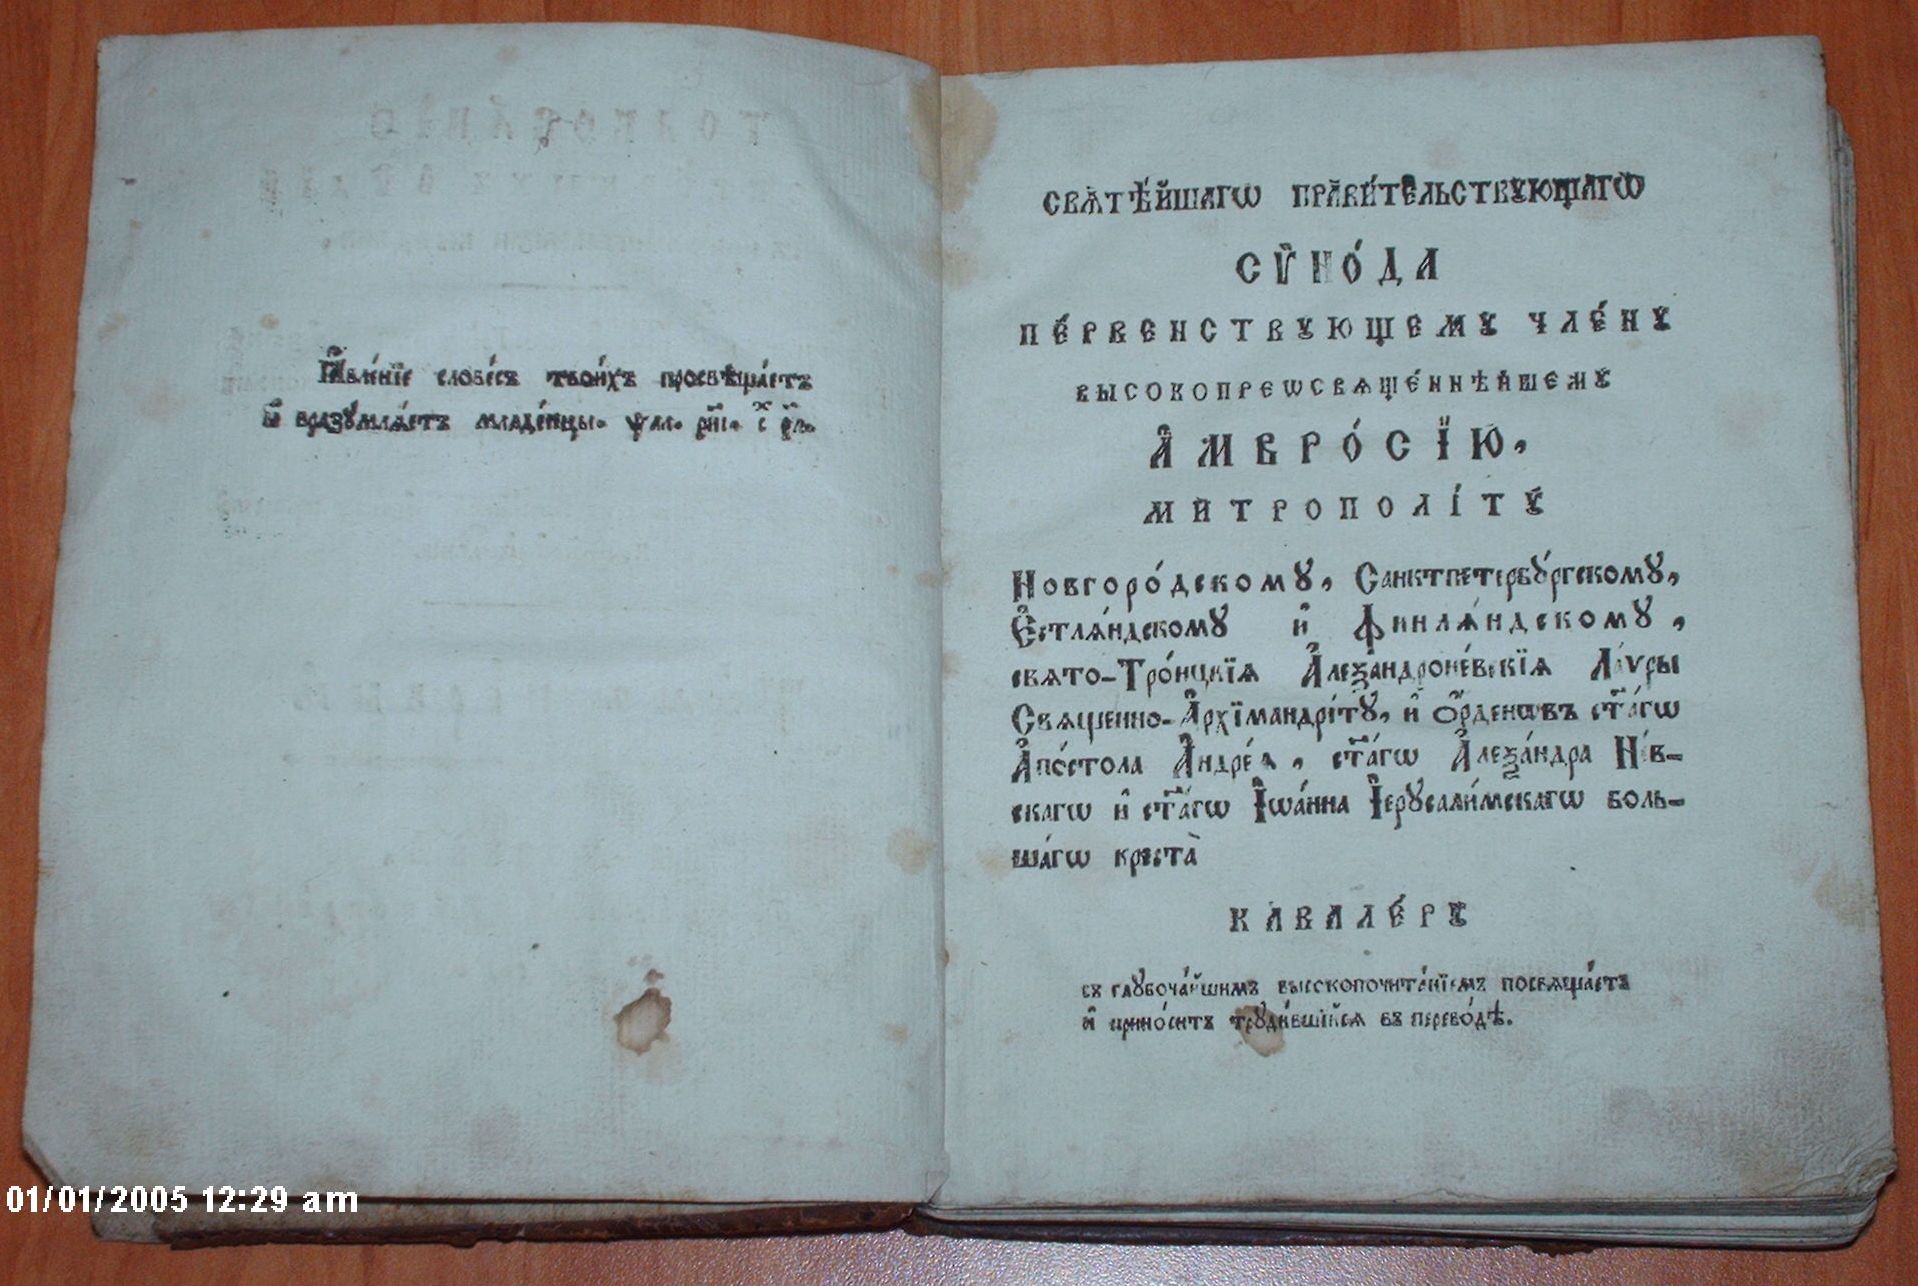 Ꙗ҆вле́нїе слове́съ твои́хъ просвѣща́етъ
и҆ вразꙋмлѧ́етъ младе́нцы. ѱал. рн҃і. с. р҃л.
свѧтѣ́йшагѡ прави́тельствꙋющагѡ
сѷно́да
пе́рвенствꙋющемꙋ чле́нꙋ
высокопреѡсвѧще́ннѣйшемꙋ
А҆мвро́сїю,
митрополі́тꙋ
Новгоро́дскомꙋ, Санктпетербꙋ́ргскомꙋ,
Е҆стлѧ́ндскомꙋ и҆ Финлѧ́ндскомꙋ,
свѧто-Тро́ицкїѧ А҆леѯа́ндроне́вскїѧ Ла́ѵры
Свѧщенно-А҆рхїмандрі́тꙋ, и҆ О҆́рденѡвъ ст҃а́гѡ
А҆по́стола А҆ндре́ѧ, ст҃а́гѡ А҆леѯа́ндра Не́в-
скагѡ и҆ ст҃а́гѡ І҆ѡа́нна І҆ерꙋсали́мскагѡ боль-
ша́гѡ креста̀
кавале́рꙋ
съ глꙋбоча́йшимъ высокопочита́нїемъ посвѧща́етъ
и҆ прино́ситъ трꙋди́вшїйсѧ въ перево́дѣ.
01/01/2005 12:29 am